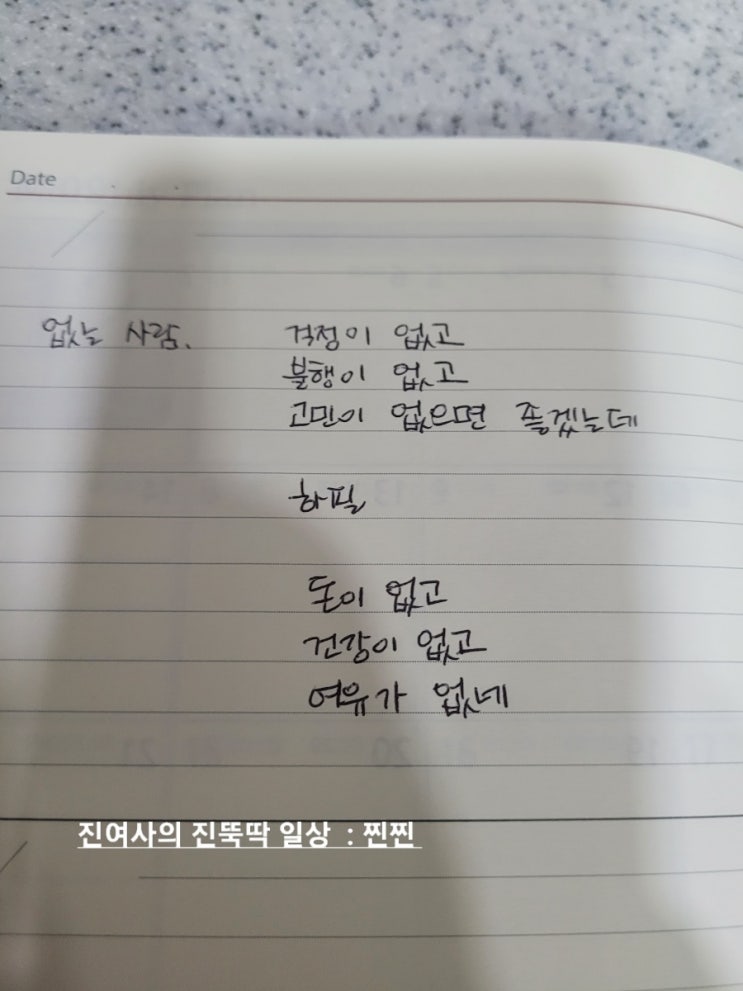 Date
없는 사람. 걱정이 없고
불행이 없고
고민이 없으면 좋겠는데
하필
돈이 없고
건강이 없고
여유가 없네
진여사의 진뚝딱 일상 : 찐찐